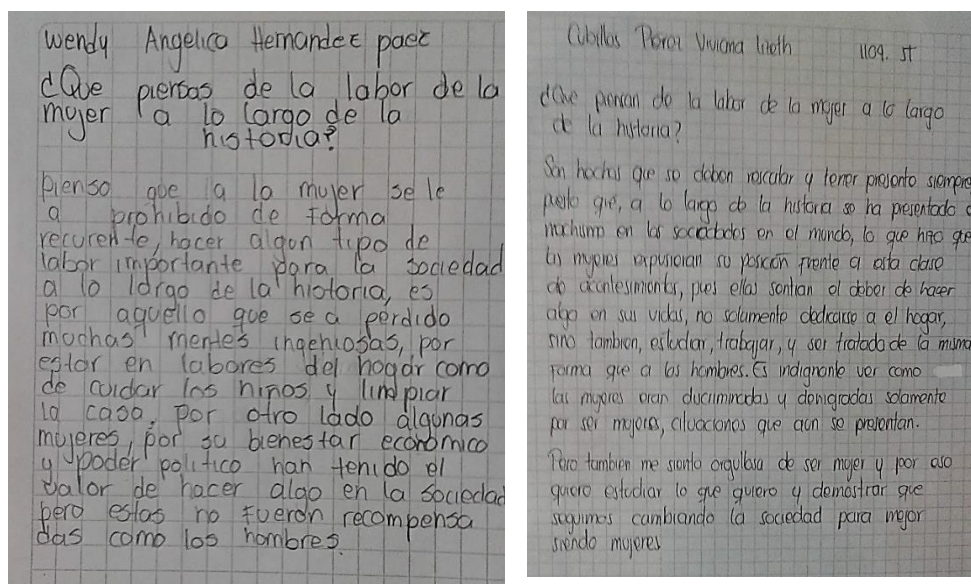 Wendy Angelica Hernandez paez
¿Que piensas de la labor de la
mujer a lo largo de la
historia?
pienso que a lo mujer se le
a prohibido de forma
recurente, hacer algun tipo de
labor importante para la sociedad
a lo largo de la historia, es
por aquello que se a perdido
muchas mentes ingeniosas, por
estar en labores del hogar como
de cuidar los niños y limpiar
la casa, por otro lado algunas
mujeres, por su bienestar económico
y poder politico han tenido el
valor de hacer algo en la sociedad
pero estas no fueron recompensa
das como los hombres.
Cubillos Viviana 1109. JT
¿Que piensan de la labor de la mujer a lo largo
de la historia?
Son hechos que se deben rescatar y tener presente siempre
puesto que, a lo largo de la historia se ha presentado
machismo en las sociedades en el mundo, lo que hizo que
las mujeres expusieran su posición frente a esta clase
de acontesimientos, pues ellas sentian el deber de hacer
algo en sus vidas, no solamente dedicarse a el hogar,
sino tambien, estudiar, trabajar, y ser tratada de la misma
forma que a los hombres. Es indignante ver como
las mujeres eran discriminadas y denigradas solamente
por ser mujeres, cituaciones que aun se presentan.
Pero tambien me siento orgullosa de ser mujer y por eso
quiero estudiar lo que quiero y demostrar que
seguimos cambiando la sociedad para mejor
siendo mujeres